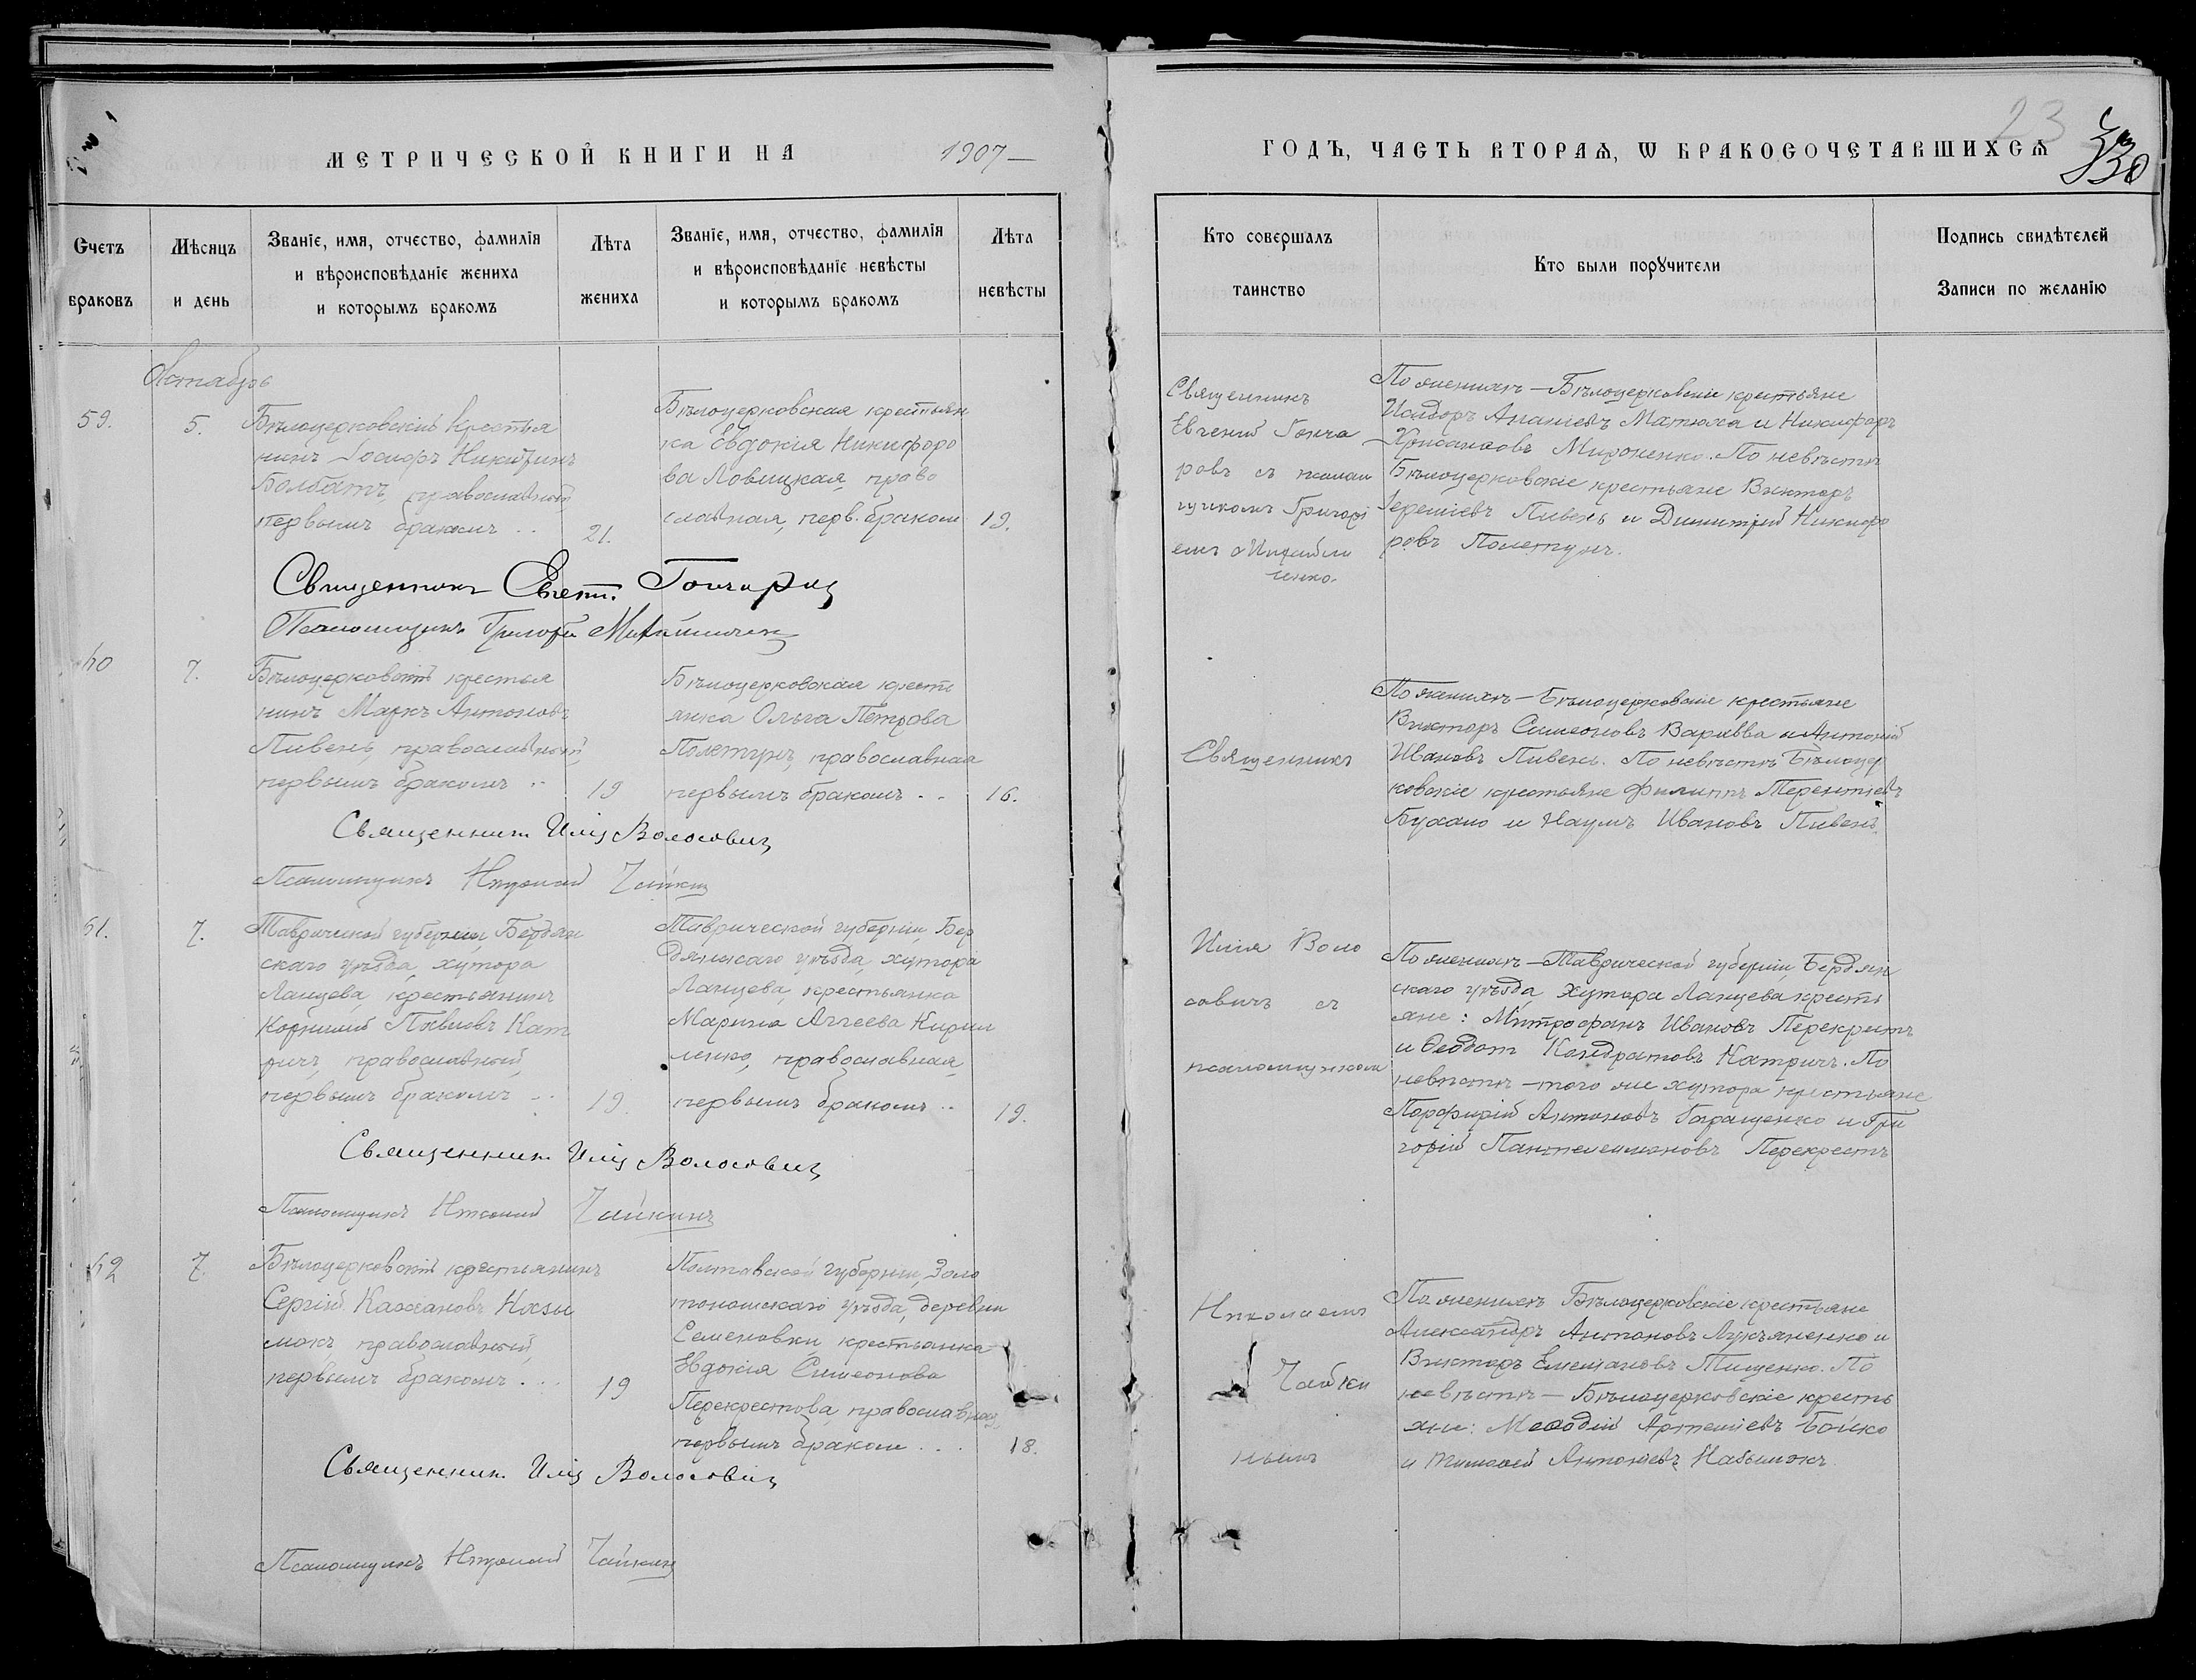 МЕТРИЧЕСКОЙ КНИГИ НА 1907
ГОДЪ, ЧАСТЬ ВТОРАЯ, Ѡ БРАКОСОЧЕТАВШИХСЯ
23
330
Счетъ браковъ
Мѣсяцъ и день
Званіе, имя, отчество, фамилія
и вѣроисповѣданіе жениха
и которымъ бракомъ
Лѣта жениха
Званіе, имя, отчество, фамилія
и вѣроисповѣданіе невѣсты
и которымъ бракомъ
Лѣта невѣсты
Кто совершалъ таинство
Кто были порꙋчители
Подпись свидѣтелей
Записи по желанію
Октябрь
59.
5.
Бѣлоцерковскій Крестья
нинъ Никитинъ
Болбатъ, православный
первымъ бракомъ ..
21.
Бѣлоцерковская крестьян
ка Евдокія Никифоро
ва Ловицкая, право
славная, перв. бракомъ
19.
Священникъ
Евгеній Гонча
ровъ съ псалом
щикомъ Григорі
емъ Михайли
ченко.
По женихѣ – Бѣлоцерковскіе крестьяне
Исидоръ Ананіевъ Матюха и Никифоръ
Хрисанѳовъ Мироненко. По невѣстѣ
Бѣлоцерковскіе крестьяне Викторъ
Іереміевъ Пивень и Димитрій Никифо
ровъ Полетунъ.
Священникъ Евгеній
Псаломщикъ Григорій
60
7.
Бѣлоцерковскій крестья
нинъ Маркъ Антоновъ
Пивень, православный,
первымъ бракомъ ..
19
Бѣлоцерковская кресть
янка Ольга Петрова
Полетунъ, православная
первымъ бракомъ ..
16.
Священникъ
По женихѣ – Бѣлоцерковскіе крестьяне
Викторъ Симеоновъ Варавва и Антоній
Ивановъ Пивень. По невѣстѣ Бѣлоцер
ковскіе крестьяне Филиппъ Терентіевъ
Бухало и Наумъ Ивановъ Пивень.
Священникъ Илія Волосовичъ
Псаломщикъ Николай Чайкинъ
61.
7.
Таврической губерніи Бердян
скаго уѣзда, хутора
Ланцева, крестьянинъ
Корнилій Павловъ Кат
ричъ, православный,
первымъ бракомъ ..
19.
Таврической губерніи, Бер
дянскаго уѣзда, хутора
Ланцева, крестьянка
Марина Аггеева Кирил
ленко, православная,
первымъ бракомъ ..
19.
Илія Воло
совичъ съ
псаломщикомъ
По женихѣ – Таврической губерніи, Бердян
скаго уѣзда, хутора Ланцева кресть
яне: Митрофанъ Ивановъ Перекрестъ
и Ѳеодотъ Кондратовъ Катричъ. По
невѣстѣ – того же хутора крестьяне
Порфирій Антоновъ Геращенко и Гри
горій Пантелеимоновъ Перекрестъ
Священникъ Илія Волосовичъ
Псаломщикъ Николай Чайкинъ
62
7.
Бѣлоцерковскій крестьянинъ
Сергій
православный,
первымъ бракомъ ...
19
Полтавской губерніи, Золо
тоношскаго уѣзда, деревни
Семеновки крестьянка
Евдокія Симеонова
Перекрестова, православная,
первымъ бракомъ ...
18.
Николаемъ
Чайки
нымъ
По женихѣ Бѣлоцерковскіе крестьяне
Александръ Антоновъ Лукьяненко и
Викторъ Емеліановъ Тищенко. По
невѣстѣ – Бѣлоцерковскіе кресть
яне: Меѳодій Артеміевъ Бойко
и Антоніевъ
Священникъ Илія Волосовичъ
Псаломщикъ Николай Чайкинъ